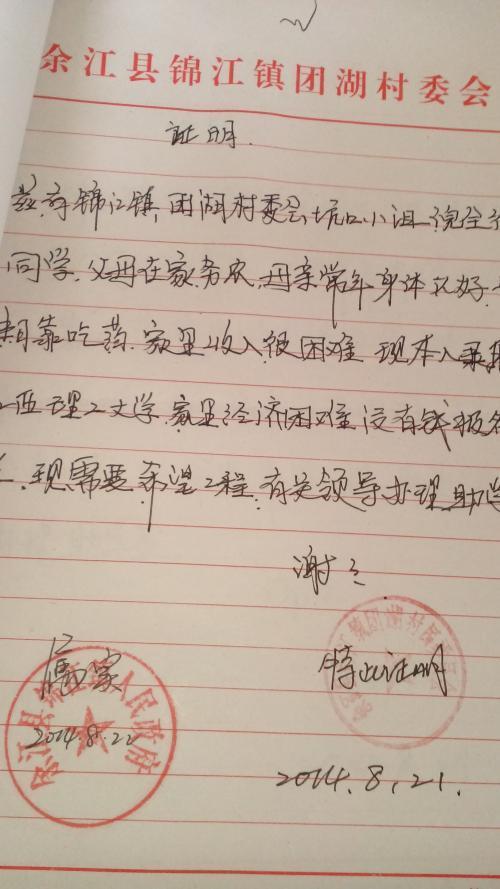 余江县锦江镇团湖村委会
证明.
兹有锦江镇,团湖村委会坑口小组倪全
同学.父母在家务农,母亲常年身体不好.
期靠吃药.家里收入很困难 现本人录
理工大学,家里经济困难没有钱报名
现需要希望工程.有关领导办理助学
谢之
属实
特此证明
2014.8.22
2014.8.21.
余江县锦江镇人民政府
江镇团湖村民委员会